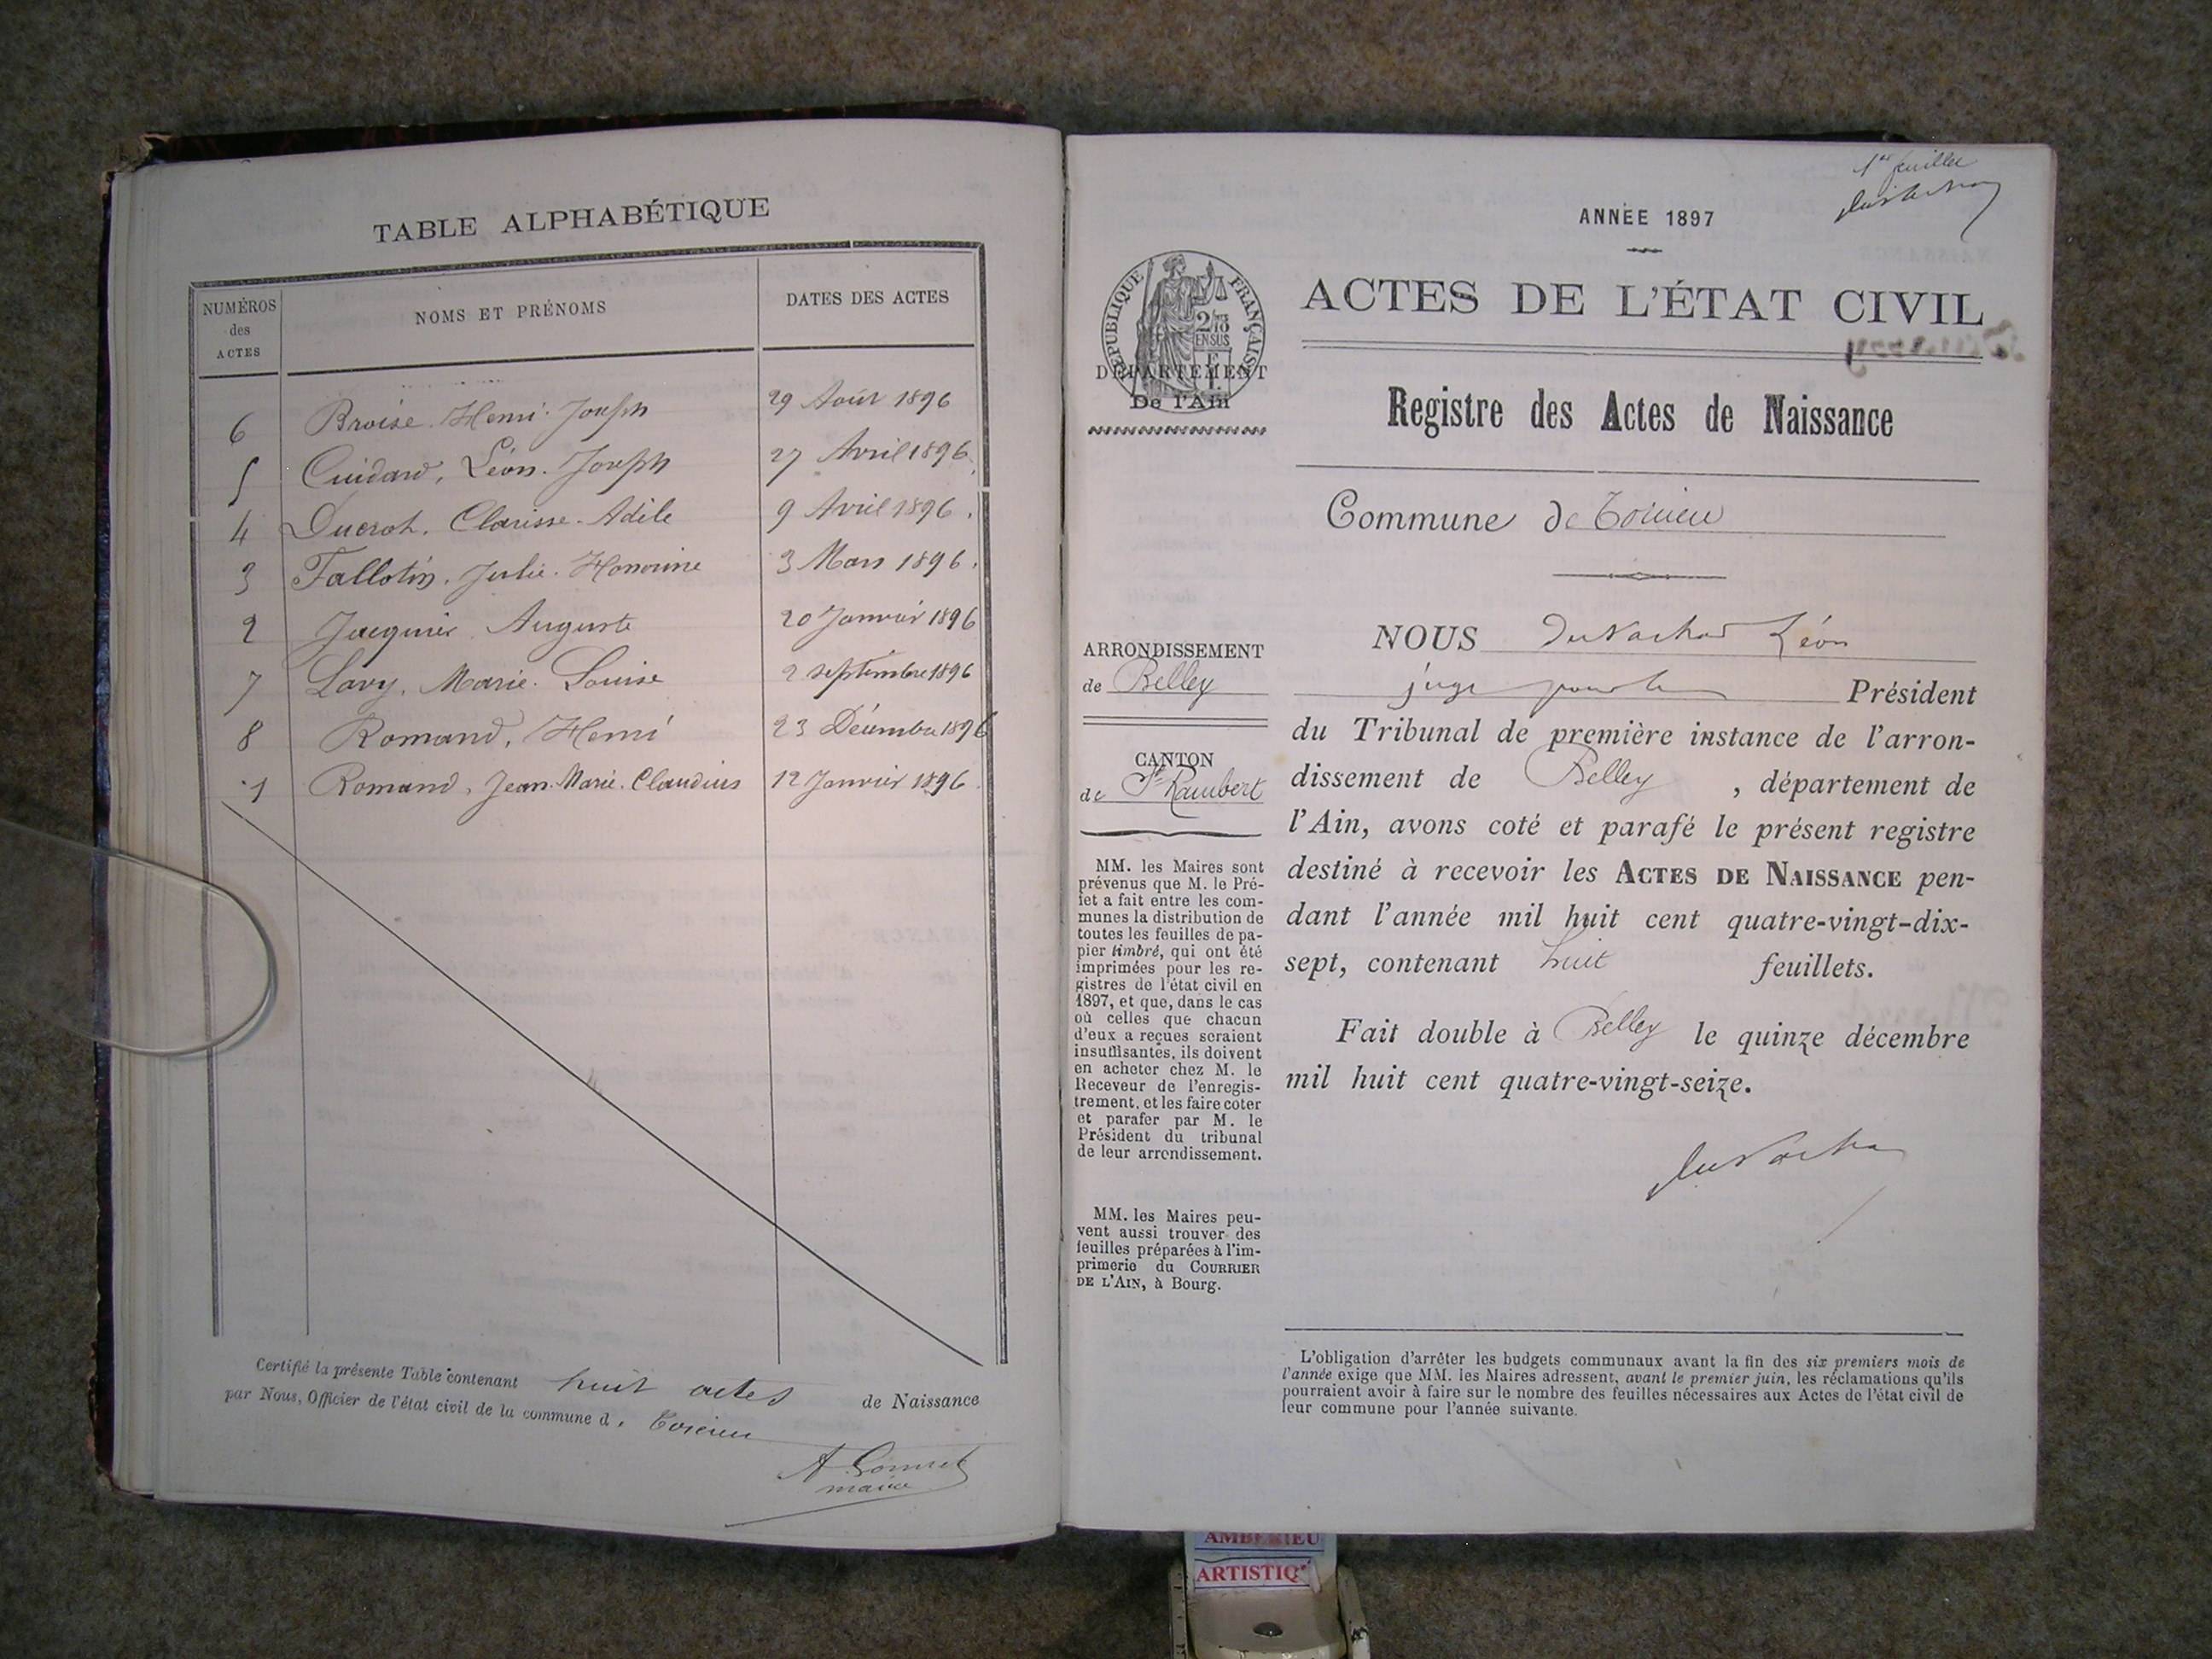 TABLE ALPHABÉTIQUE
NUMÉROS des ACTES
NOMS ET PRÉNOMS
DATES DES ACTES
6 Broise. Henri. Joseph 29 Août 1896
5 Cuidard, Léon. Joseph 27 Avril 1896
4 Ducroh. Clarisse. Adèle 9 Avril 1896.
3 Fallotin. Julie. Honorine 3 Mars 1896.
2 Jacquier Auguste 20 Janvier 1896
7 Lavy, Marie. Louise 2 septembre 1896
8 Romand, Henri 23 Décembre 1896
1 Romand, Jean. Marie. Claudius 12 Janvier 1896
Certifié la présente Table contenant huit actes de Naissance
par Nous, Officier de l'état civil de la commune d
maire
1er feuillet
ANNÉE 1897
RÉPUBLIQUE FRANÇAISE
DÉPARTEMENT
De l'Ain
ACTES DE L'ÉTAT CIVIL
Registre des Actes de Naissance
Commune de Torcieu
ARRONDISSEMENT
de Belley
CANTON
de St Rambert
MM. les Maires sont
prévenus que M. le Pré-
fet a fait entre les com-
munes la distribution de
toutes les feuilles de pa-
pier timbré, qui ont été
imprimées pour les re-
gistres de l'état civil en
1897, et que, dans le cas
où celles que chacun
d'eux a reçues seraient
insuffisantes, ils doivent
en acheter chez M. le
Receveur de l'enregis-
trement, et les faire coter
et parafer par M. le
Président du tribunal
de leur arrondissement.
MM. les Maires peu-
vent aussi trouver des
feuilles préparées à l'im-
primerie du COURRIER
DE L'AIN, à Bourg.
NOUS Léon
juge pour le Président
du Tribunal de première instance de l'arron-
dissement de Belley, département de
l'Ain, avons coté et parafé le présent registre
destiné à recevoir les ACTES DE NAISSANCE pen-
dant l'année mil huit cent quatre-vingt-dix-
sept, contenant huit feuillets.
Fait double à Belley le quinze décembre
mil huit cent quatre-vingt-seize.
L'obligation d'arrêter les budgets communaux avant la fin des six premiers mois de
l'année exige que MM. les Maires adressent, avant le premier juin, les réclamations qu'ils
pourraient avoir à faire sur le nombre des feuilles nécessaires aux Actes de l'état civil de
leur commune pour l'année suivante.
AMBERIEU
ARTISTIQ